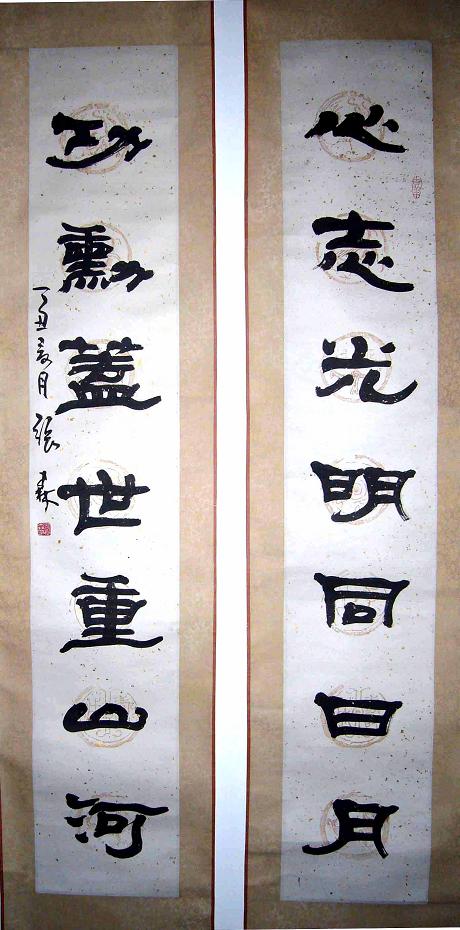 心志光明同日月
功勳蓋世重山河
丁丑三月 張森